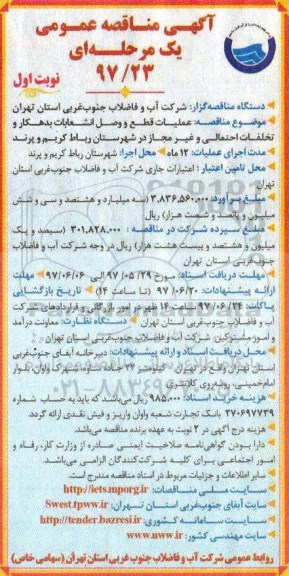 آگهی مناقصه عمومی
یک مرحله‌ای
۹۷/۲۳
نوبت اول
دستگاه مناقصه‌گزار: شرکت آب و فاضلاب جنوب‌غربی استان تهران
موضوع مناقصه: عملیات قطع و وصل انشعابات بدهکار و
تخلفات احتمالی و غیر مجاز در شهرستان رباط کریم و پرند
مدت اجرای عملیات: ۱۲ ماه محل اجرا: شهرستان رباط کریم و پرند
محل تامین اعتبار: اعتبارات جاری شرکت آب و فاضلاب جنوب‌غربی استان
تهران
مبلغ برآورد: ۳.۸۳۶.۵۶۰.۰۰۰ (سه میلیارد و هشتصد و سی و شش
میلیون و پانصد و شصت هزار) ریال
مبلغ سپرده شرکت در مناقصه: ۳۰۱.۸۲۸.۰۰۰ (سیصد و یک
میلیون و هشتصد و بیست هشت هزار) ریال در وجه شرکت آب و فاضلاب
جنوب‌غربی استان تهران
مهلت دریافت اسناد: مورخ ۹۷/۰۵/۲۹ الی ۹۷/۰۶/۰۶ مهلت
ارائه پیشنهادات: ۹۷/۰۶/۲۰ (تا ساعت ۱۴) تاریخ بازگشایی
پاکات: ۹۷/۰۶/۲۴ ساعت ۱۴ ظهر در امور بازرگانی و قراردادهای شرکت
آب و فاضلاب جنوب‌غربی استان تهران دستگاه نظارت: معاونت درآمد
و امور مشترکین شرکت آب و فاضلاب جنوب‌غربی استان تهران
محل دریافت اسناد و ارائه پیشنهادات: دبیرخانه آبفای جنوب‌غربی
استان تهران واقع در تهران کیلومتر ۲۳ جاده ساوه شهرک واوان بلوار
امام‌خمینی، روبه‌روی کلانتری
هزینه خرید اسناد: ۹۸۵.۰۰۰ ریال می‌باشد که باید به حساب شماره
۳۷۰۶۹۷۷۳۹ بانک تجارت شعبه واوان واریز و فیش نقدی ارائه گردد.
هزینه درج آگهی در ۲ نوبت به عهده برنده مناقصه می‌باشد.
دارا بودن گواهی‌نامه صلاحیت ایمنی صادره از وزارت کار، رفاه و
امور اجتماعی برای کلیه شرکت‌کنندگان الزامی می‌باشد.
سایر اطلاعات و جزئیات مربوط در اسناد مناقصه مندرج است.
سایت ملی مناقصات: http://iets.mporg.ir
سایت آبفای جنوب‌غربی استان تهران: Swest.tpww.ir
سایت سامانه کشوری: http://tender.bazresi.ir
سایت مهندسی کشور: www.nww.ir
روابط عمومی شرکت آب و فاضلاب جنوب غربی استان تهران (سهامی خاص)